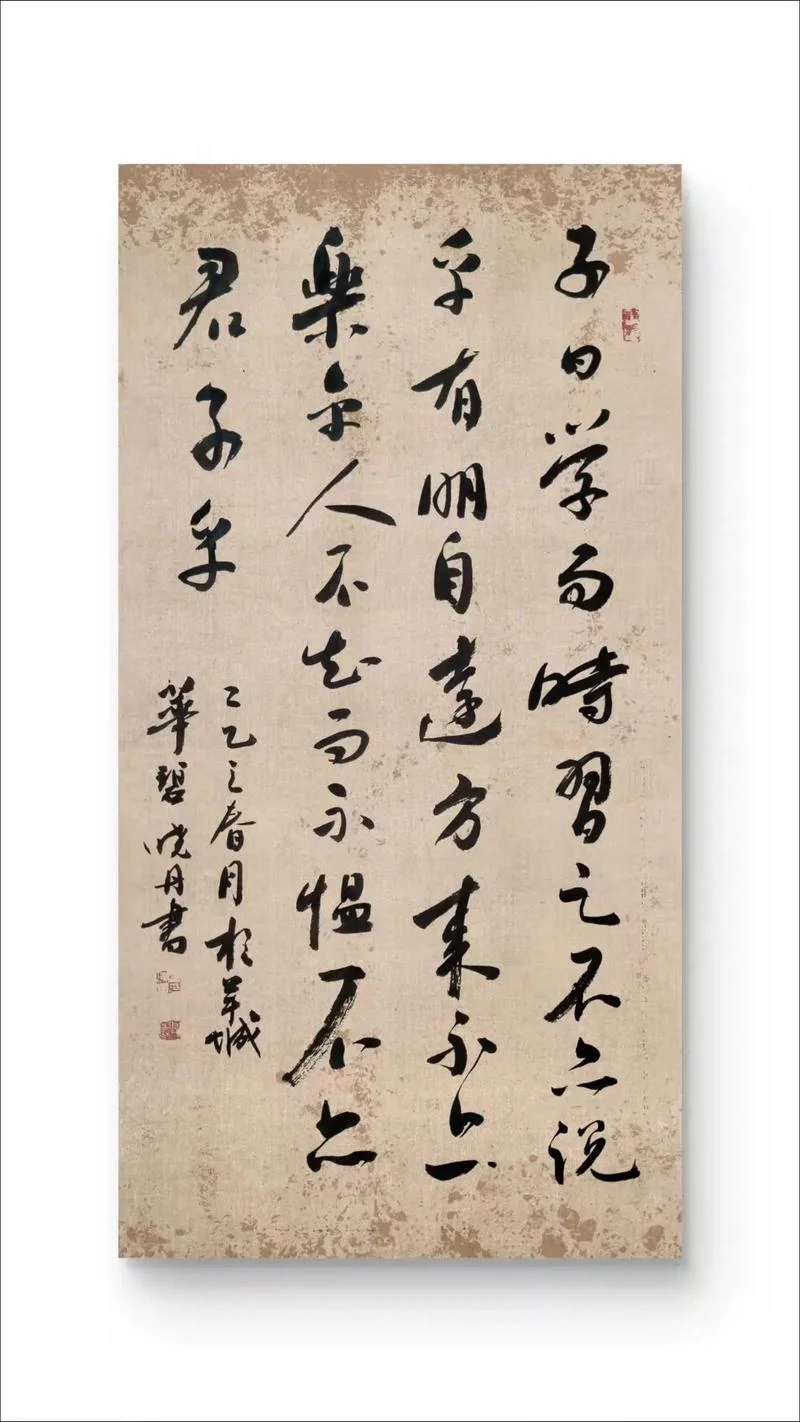 子曰学而時習之不亦説
乎有朋自遠方来不亦
樂乎人不知而不愠不亦
君子乎
乙巳之春月於羊城
華碧晓丹書